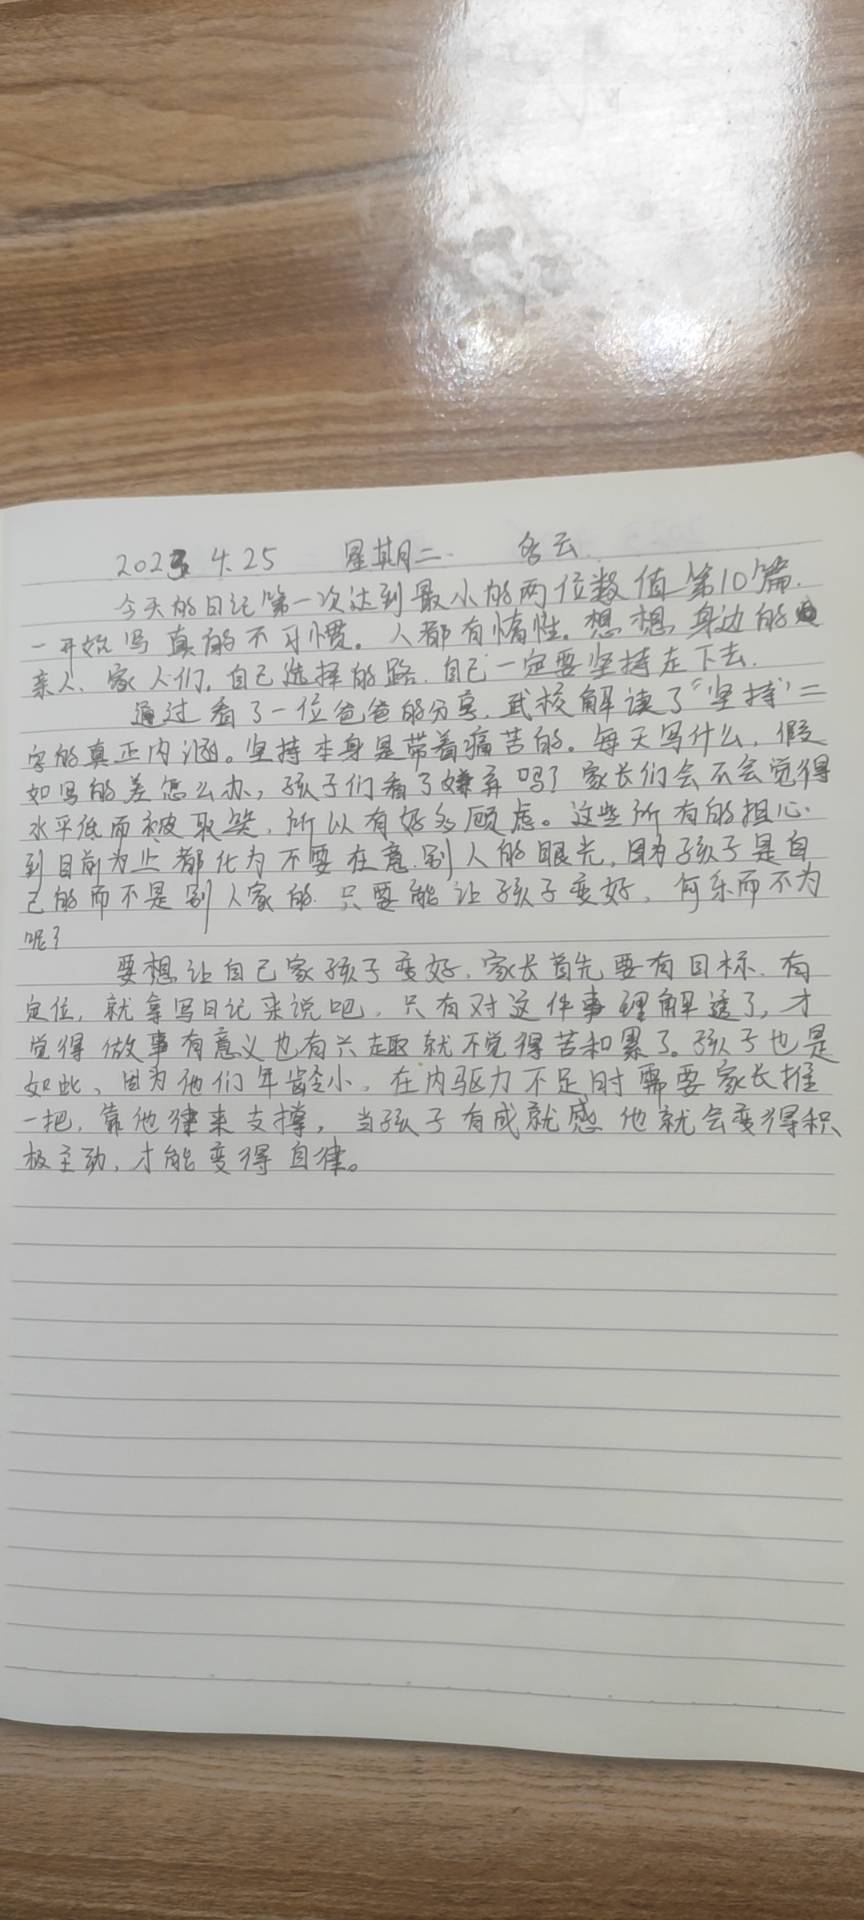 2023 4.25 星期二. 多云.
今天的日记第一次达到最小的两位数值第10篇.
一开始写真的不习惯。人都有惰性。想想身边的
亲人、家人们,自己选择的路.自己一定要坚持走下去.
通过看了一位爸爸的分享.我校解读了“坚持”二
字的真正内涵。坚持本身是带着痛苦的。每天写什么,假
如写的差怎么办,孩子们看了嫌弃吗?家长们会不会觉得
水平低而被取笑,所以有好多顾虑。这些所有的担心.
到目前为止都化为不要在意别人的眼光,因为孩子是自
己的而不是别人家的.只要能让孩子变好,何乐而不为
呢?
要想让自己家孩子变好.家长首先要有目标.有
定位,就拿写日记来说吧,只有对这件事理解透了,才
觉得做事有意义也有兴趣就不觉得苦和累了。孩子也是
如此、因为他们年龄小,在内驱力不足时需要家长推
一把,靠他律来支撑,当孩子有成就感他就会变得积
极主动,才能变得自律。